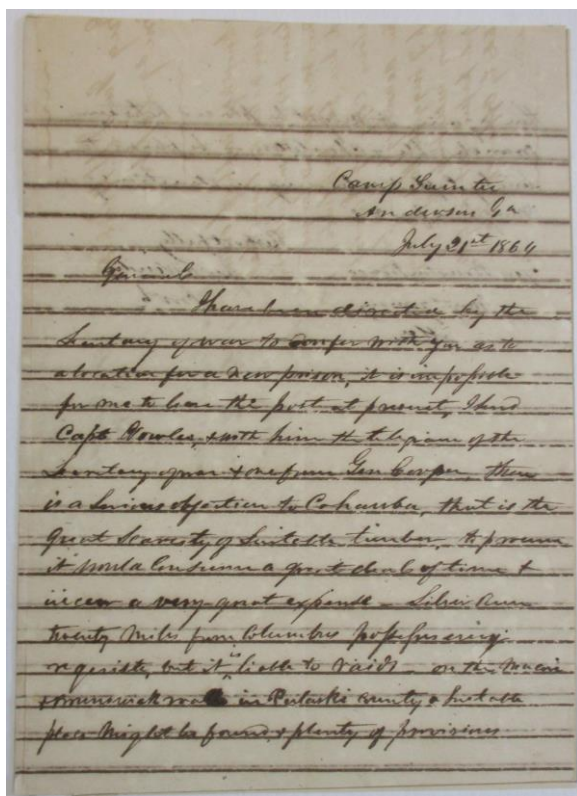 Camp Sumter
Anderson Ga
July 21st 1864
General
I have been directed by the
Secretary of war to confer with you as to
a location for a new prison, it is impossible
for me to leave the post at present, I send
Capt Bowles, & with him the telegram of the
Secretary of war & one from Gen Cooper, there
is a serious objection to Cahawba, that is the
great scarcity of suitable timber, to procure
it would consume a great deal of time &
incur a very great expense - Silver Run
twenty miles from Columbus possesses every
requisite, but it is liable to raids - on the Macon
& Brunswick road in Pulaski county a suitable
place might be found & plenty of provisions